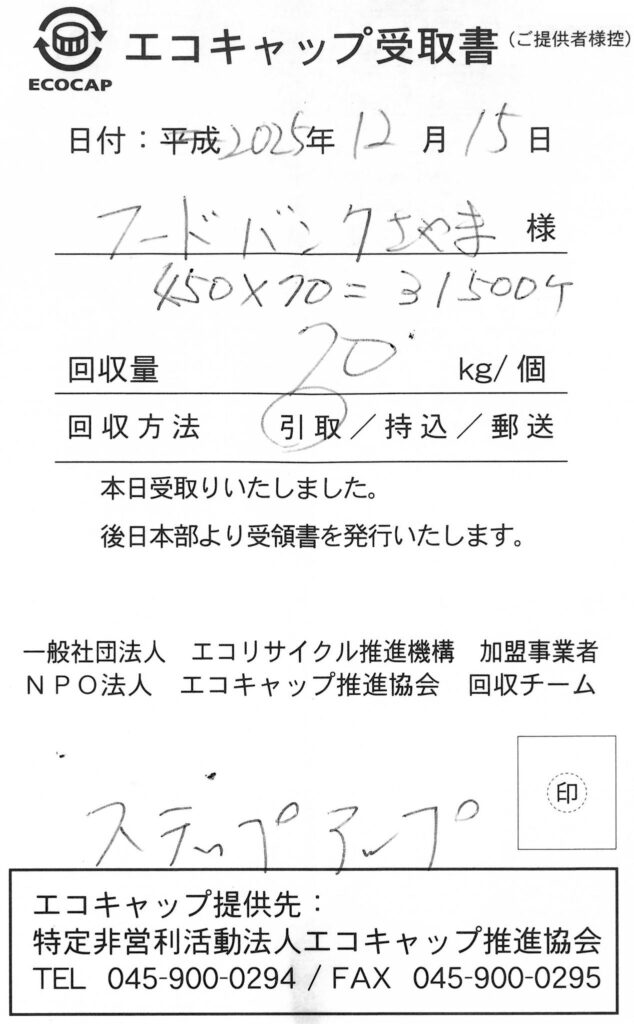 エコキャップ受取書(ご提供者様控)
ECOCAP
日付:平成2025年12月15日
フードバンクさやま 様
450×70=31500ケ
回収量 70 kg/個
回収方法 引取/持込/郵送
本日受取りいたしました。
後日本部より受領書を発行いたします。
一般社団法人 エコリサイクル推進機構 加盟事業者
NPO法人 エコキャップ推進協会 回収チーム
印
ステップアップ
エコキャップ提供先:
特定非営利活動法人エコキャップ推進協会
TEL 045-900-0294 / FAX 045-900-0295